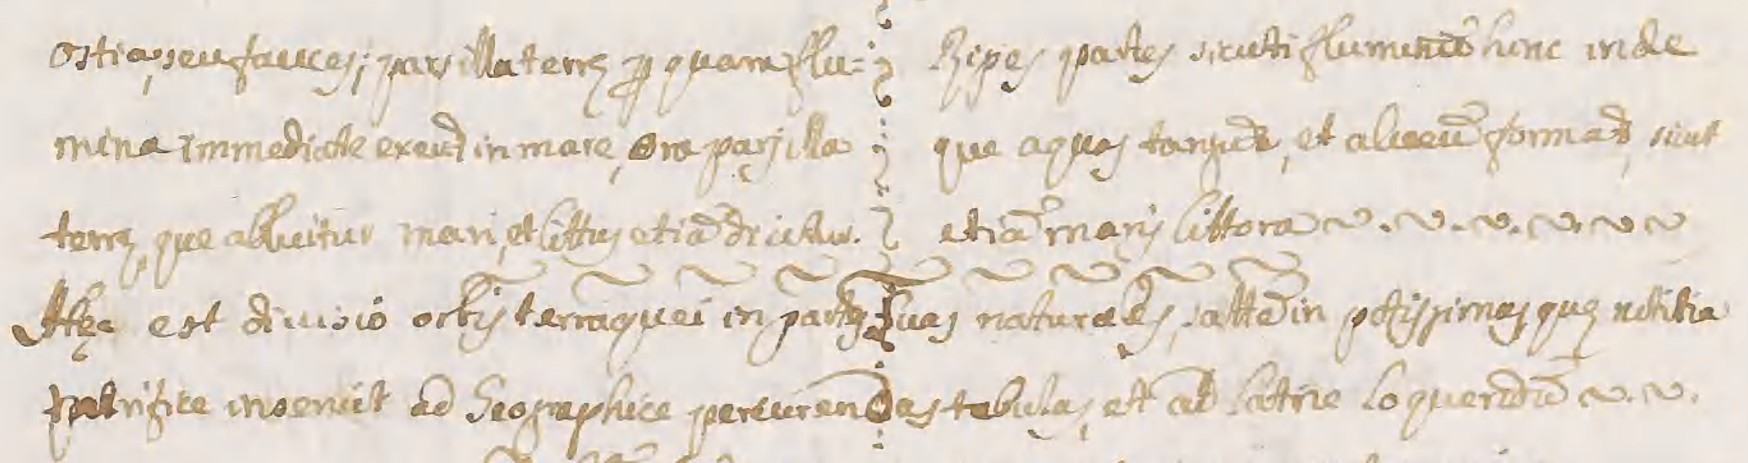 Ostia, seu fauces; pars illa terrę p quam flu=
mina immediate exeūt in mare, Ora pars illa
terrę, que abluitur mari, et littus etiā dicitur.
Ripes partes sicuti fluminū hinc inde
que aquas tangūt, et alueū formāt, sicut
etiā maris littora
Atqe est diuisio orbis terraquei in partes suas naturales, saltē in potissimas quę notitia
inseruit ad Geographice percurendas tabulas, et ad latine loquendū